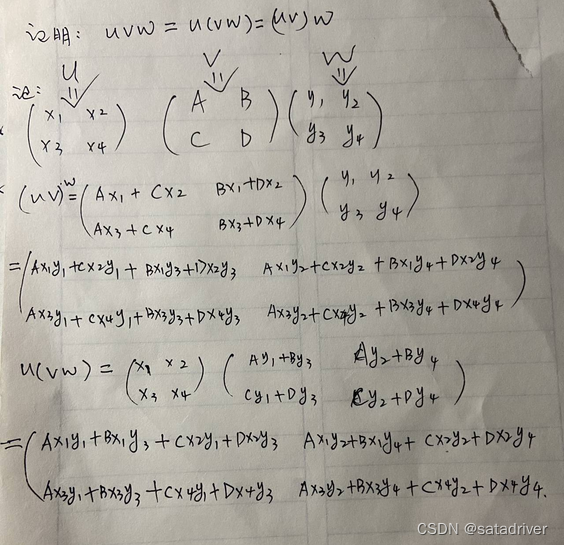 证明: UVW = U(VW) = (UV)W
U V W
记:
( x1 x2 ) ( A B ) ( y1 y2 )
( x3 x4 ) ( C D ) ( y3 y4 )
(UV)W = ( Ax1 + Cx2 Bx1 + Dx2 ) ( y1 y2 )
( Ax3 + Cx4 Bx3 + Dx4 ) ( y3 y4 )
= ( Ax1y1 + Cx2y1 + Bx1y3 + Dx2y3 Ax1y2 + Cx2y2 + Bx1y4 + Dx2y4 )
( Ax3y1 + Cx4y1 + Bx3y3 + Dx4y3 Ax3y2 + Cx4y2 + Bx3y4 + Dx4y4 )
U(VW) = ( x1 x2 ) ( Ay1 + By3 Ay2 + By4 )
( x3 x4 ) ( Cy1 + Dy3 Cy2 + Dy4 )
= ( Ax1y1 + Bx1y3 + Cx2y1 + Dx2y3 Ax1y2 + Bx1y4 + Cx2y2 + Dx2y4
( Ax3y1 + Bx3y3 + Cx4y1 + Dx4y3 Ax3y2 + Bx3y4 + Cx4y2 + Dx4y4.
CSDN @satadriver